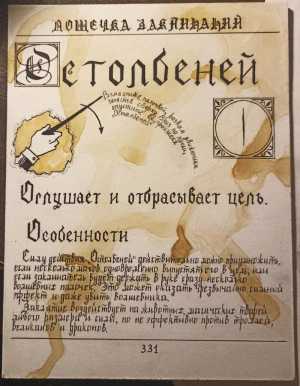 ПОШЕЧКА ЗАКЛИНАНИЙ
Остолбеней
Оглушает и отбрасывает цель.
Особенности
Силу действия "Остолбеней" действительно можно приумножить,
если несколько магов одновременно выпустят его в цель или
если заклинатель будет держать в руке сразу несколько
волшебных палочек. Это может оказать чрезвычайно сильный
эффект и даже убить волшебника.
Заклятие воздействует на животных, магические тварей
любого размера и силы, но не эффективно против троллей,
великанов и драконов.
331